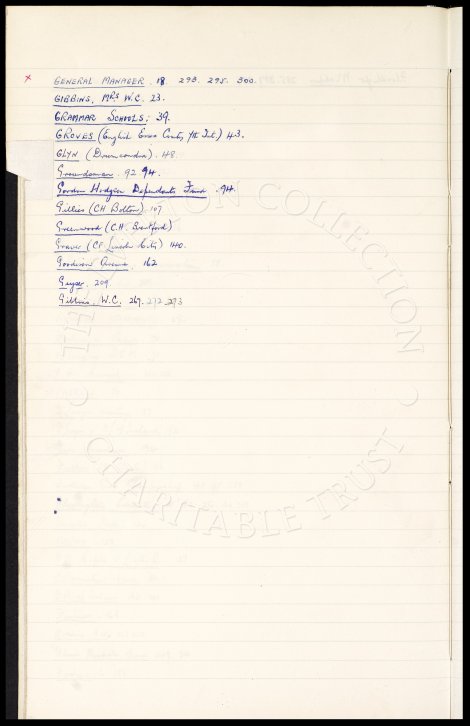 x GENERAL MANAGER. 18 293. 295. 300.
GIBBINS, MRS W.C. 23.
GRAMMAR SCHOOLS; 39.
GROVES (English Evans County Yth Int.) 43.
GLYN (Drumcondra). 48.
Groundsman. 92 94.
Gordon Hodgson Dependents Fund. 94.
Gillies (C.H. Bolton). 107
Greenwood (C.H. Brentford)
Graver (C.F. Lincoln City) 140.
Goodison Avenue. 162
Geyser. 209.
Gibbins, W.C. 267. 272. 273
THE EVERTON COLLECTION
CHARITABLE TRUST